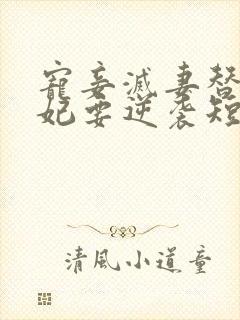 寵妾滅妻替
妃要逆袭短
清風小道童